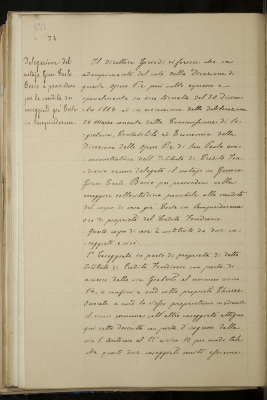 74
Delegazione del
notajo Gian Carlo
Basso a procedere
per la vendita di
caseggiati già Costa
in Sampierdarena
Il direttore Garoldi riferisce che in
adempimento del voto della Direzione di
queste opere Pie più volte espresso e
specialmente in una tornata del 30 Dicem-
bre 1884 ed in esecuzione della deliberazione
26 Marzo della Commissione di
Contabilità ed Economia della
Direzione delle Opere Pie di San Paolo am-
ministratrice dell'Istituto di Credito Fon-
diario venne delegato il notajo in Genova
Gian Carlo Basso per procedere colla
maggior sollecitudine possibile alla vendita
del corpo di case già Costa in Sampierdarena
ora di proprietà del Credito Fondiario.
Questo corpo di case è costituito da due ca-
seggiati e cioè:
1° Caseggiato in parte di proprietà di detto
Istituto di Credito Fondiario con porta di
accesso dalla via al numero civico
14, e confina a sud colla proprietà
a nord lo stesso proprietario mediante
il muro comune coll'altro caseggiato attiguo
qui sotto descritto con porta d'ingresso dalla
via S. Antonio al N° civico 10 per modo tale
che questi due caseggiati uniti